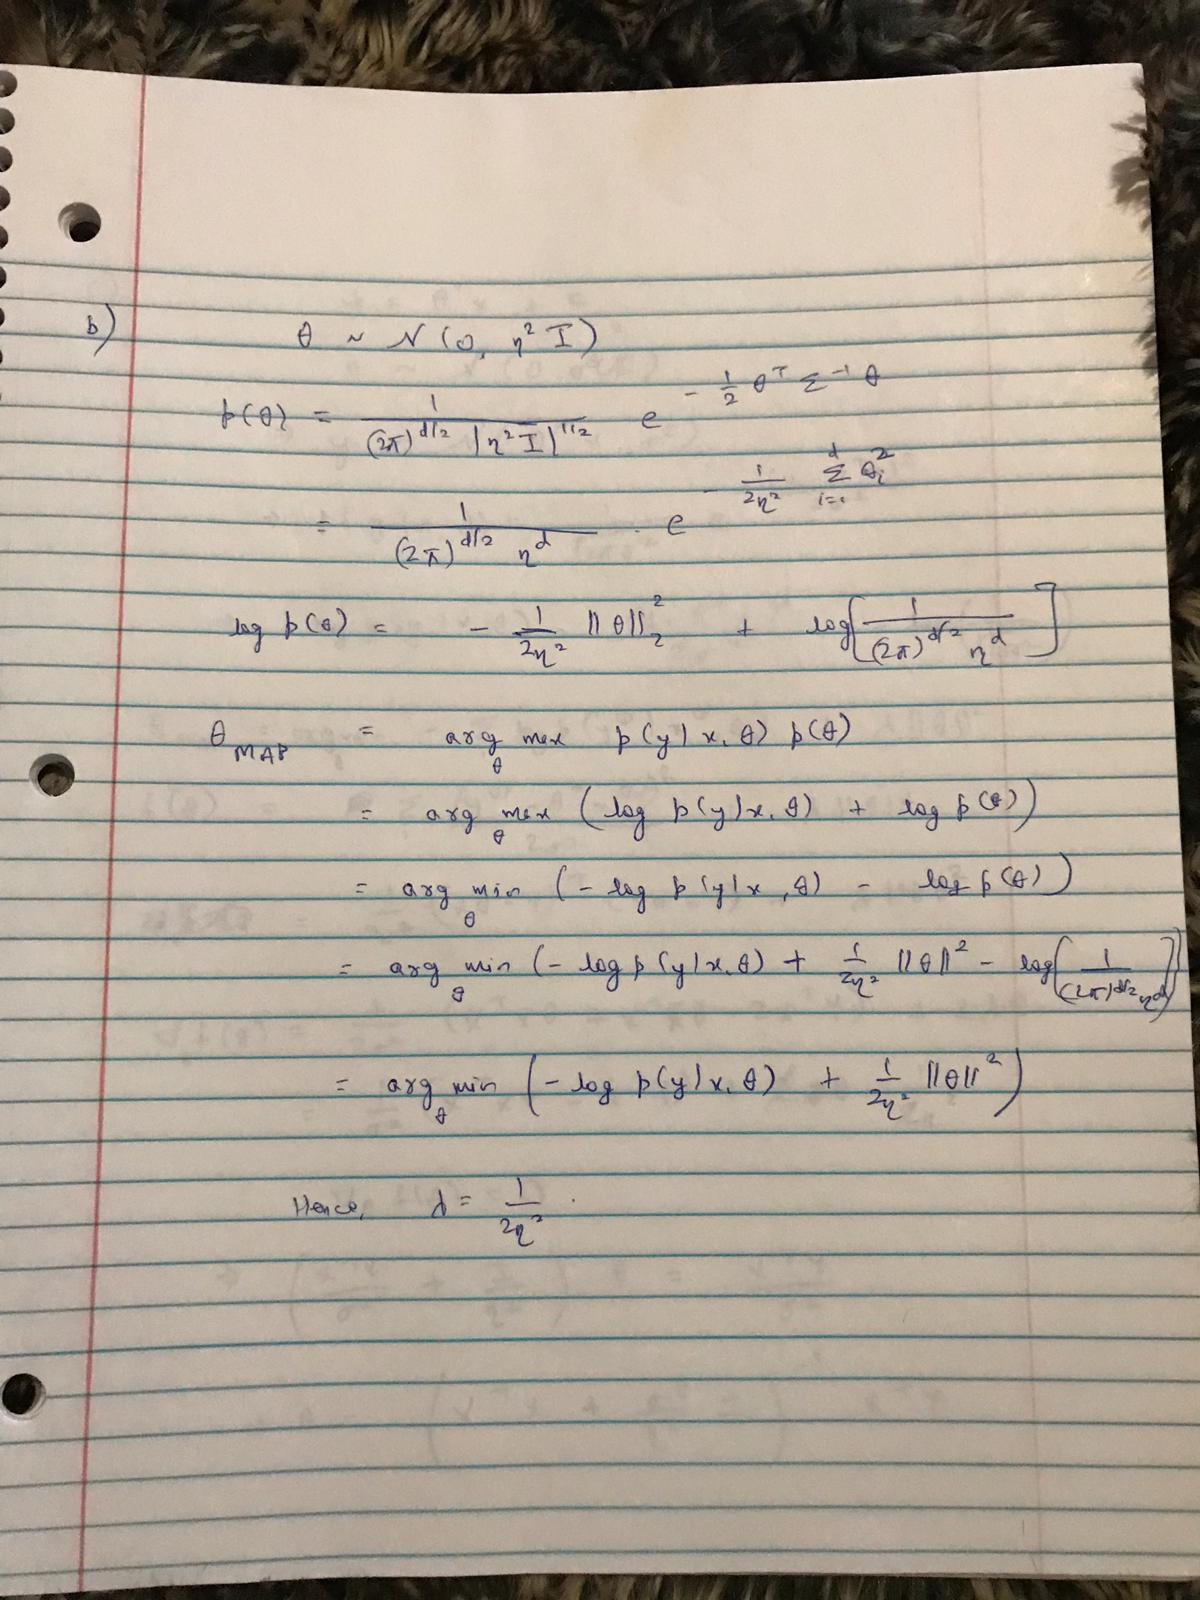 b) θ ~ N(0, η² I)
p(θ) = 1 / ((2π)^{d/2} |η² I|^{1/2}) e^{-1/2 θ^T Σ^{-1} θ}
= 1 / ((2π)^{d/2} η^d) . e^{-1/(2η²) Σ_{i=1}^{d} θ_i²}
log p(θ) = - 1/(2η²) ||θ||₂² + log[1 / ((2π)^{d/2} η^d)]
θ_MAP = arg max_θ p(y|x, θ) p(θ)
= arg max_θ (log p(y|x, θ) + log p(θ))
= arg min_θ (- log p(y|x, θ) - log p(θ))
= arg min_θ (- log p(y|x, θ) + 1/(2η²) ||θ||² - log[1 / ((2π)^{d/2} η^d)])
= arg min_θ (- log p(y|x, θ) + 1/(2η²) ||θ||²)
Hence, λ = 1/(2η²) .